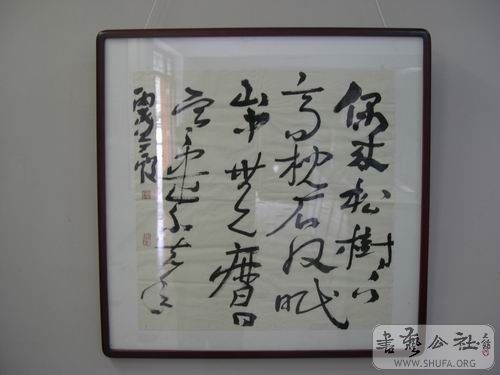 偶來松樹下
高枕石頭眠
山中無曆日
寒盡不知年
丙戌
書藝公社
WWW.SHUFA.ORG